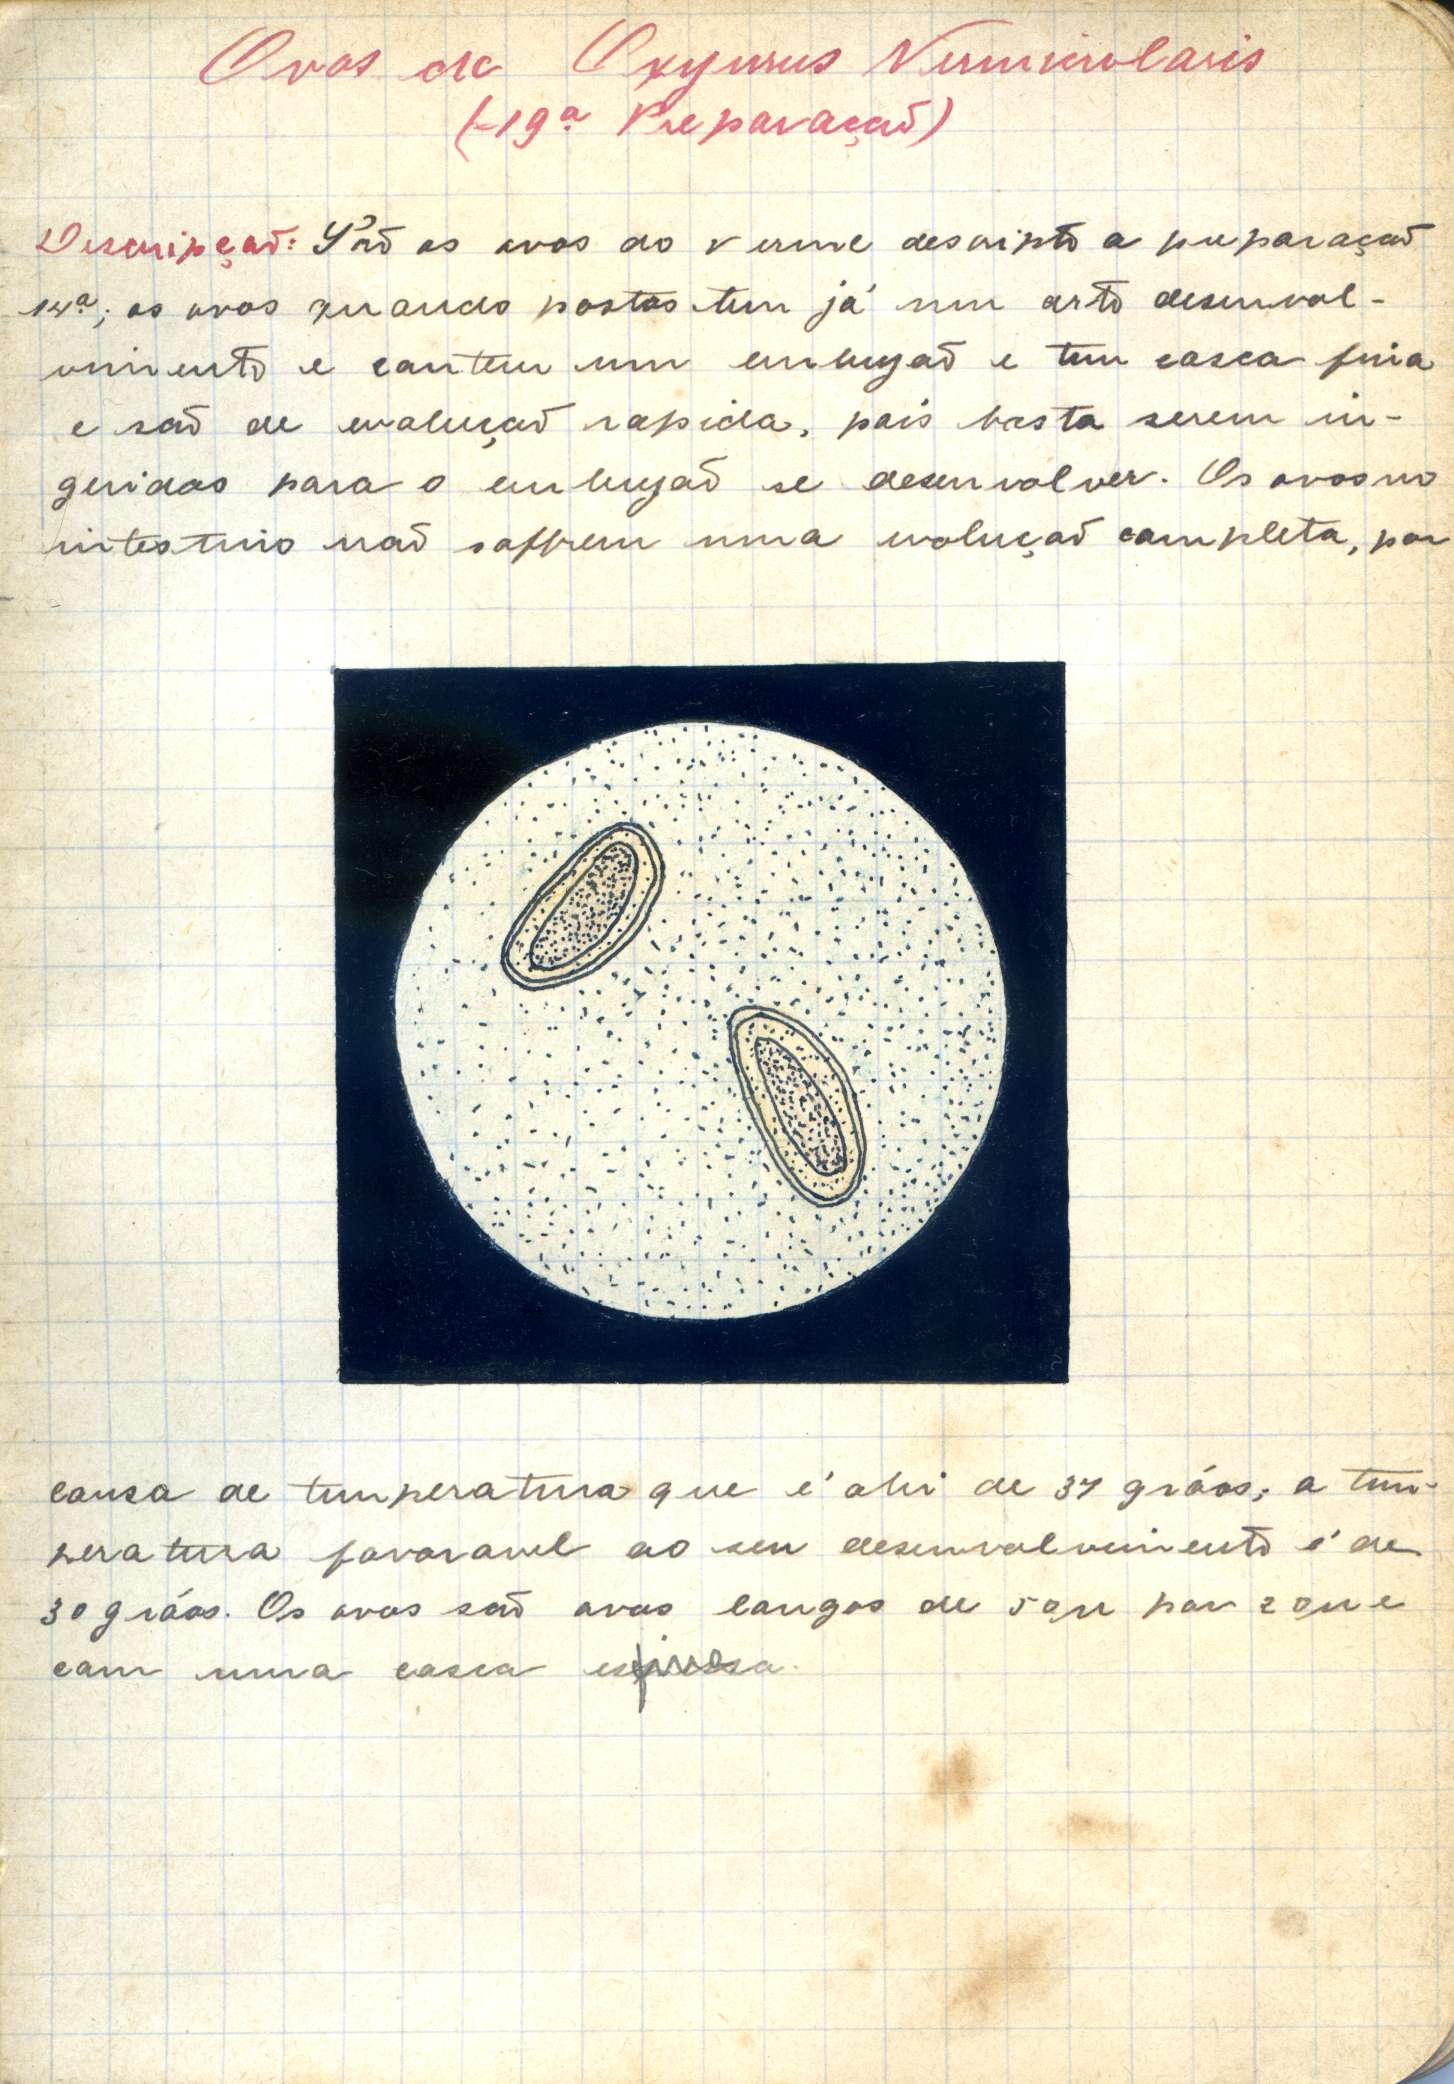 Ovos de Oxyurus Vermicularis
(-19ª Preparação)
Descripção: São os ovos do verme descripto a preparação
14ª; os ovos quando postos tem já um certo desenvol-
vimento e contem um embryão e tem casca fina
e são de evolução rapida, pois basta serem in-
geridos para o embryão se desenvolver. Os ovos no
intestino não soffrem uma evolução completa, por
causa de temperatura que é ahi de 37 gráos; a tem-
peratura favoravel ao seu desenvolvimento é de
30 gráos. Os ovos são ovos longos de 50µ por 20µ e
com uma casca